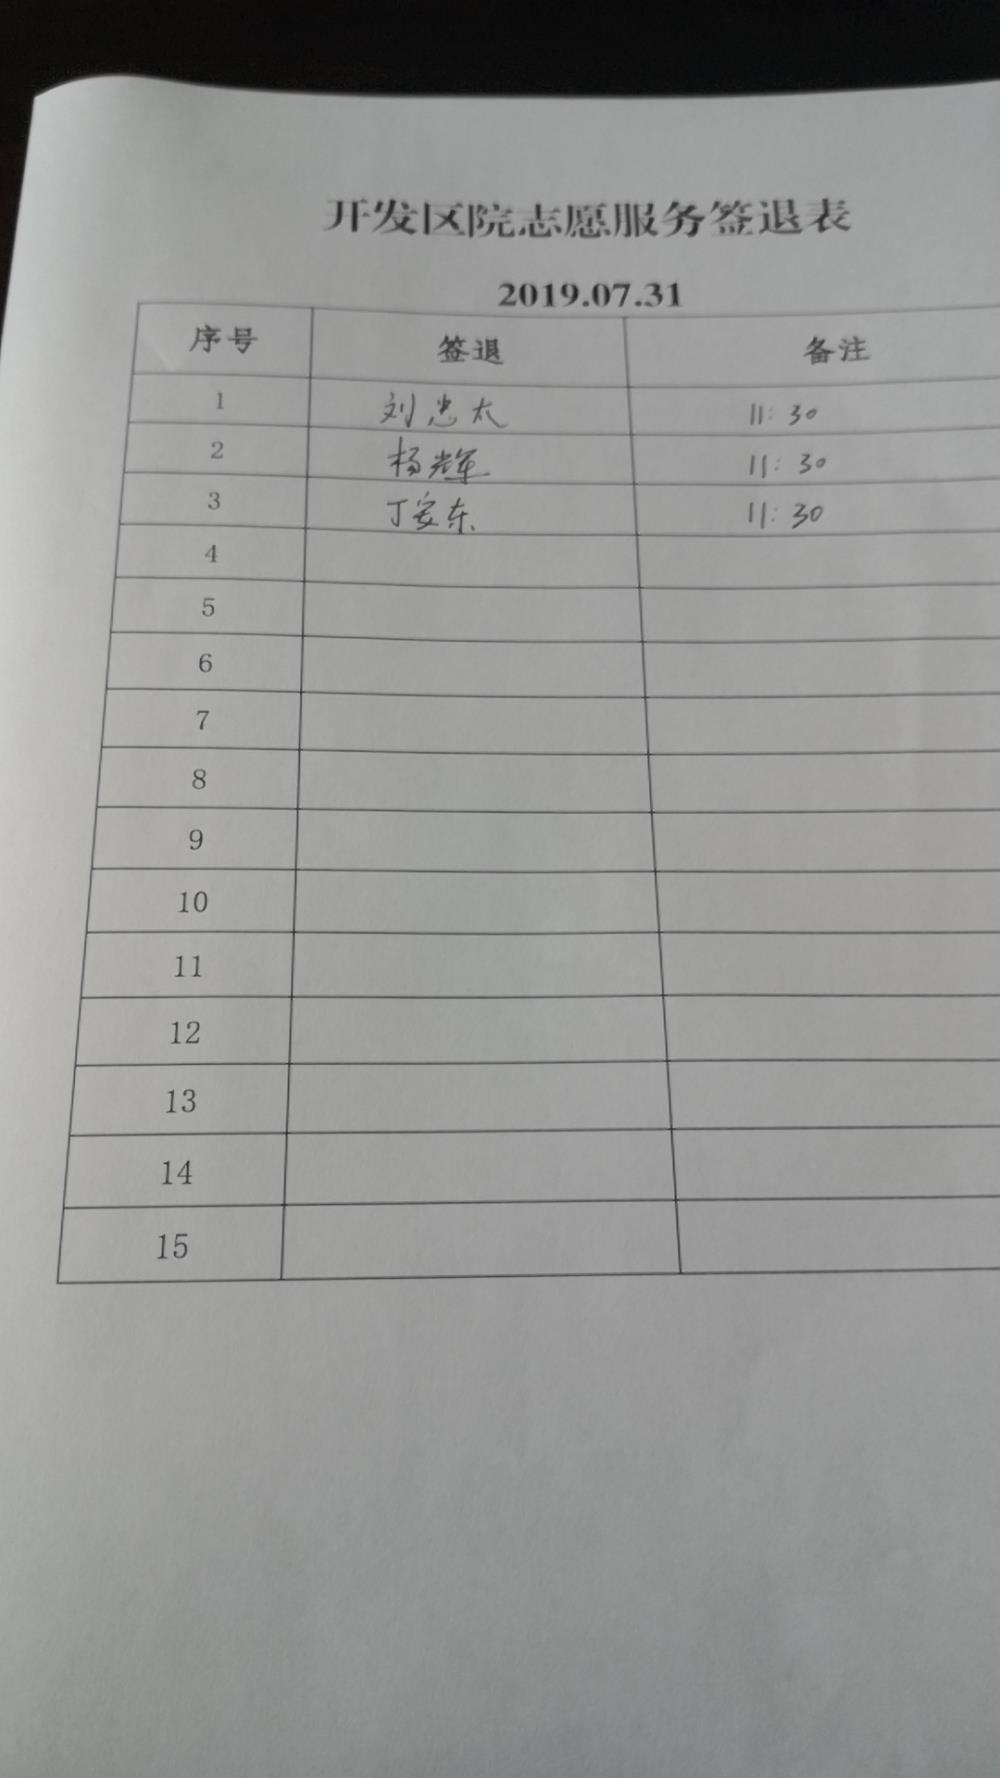 开发区院志愿服务签退表
2019.07.31
序号 签退 备注
1 刘忠太 11:30
2 杨辉 11:30
3 丁安东 11:30
4
5
6
7
8
9
10
11
12
13
14
15